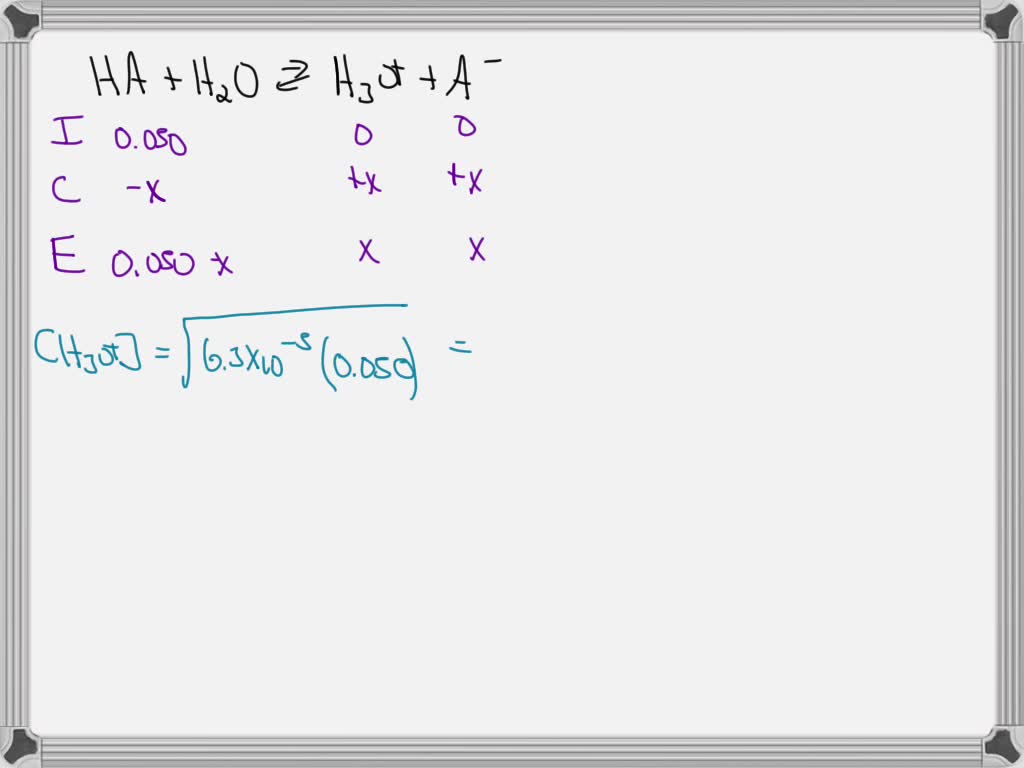 HA + H₂O ⇄ H₃O⁺ + A⁻
I 0.050 0 0
C -x +x +x
E 0.050 -x x x
[H₃O⁺] = √6.3x10⁻⁵ (0.050) =